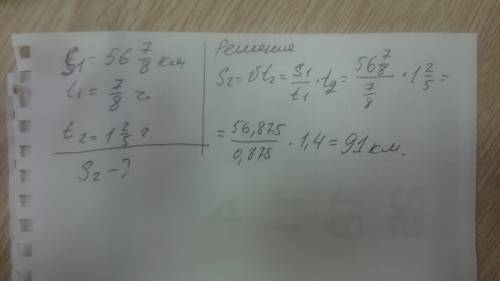 S₁ = 56 7/8 км
t₁ = 7/8 ч.
t₂ = 1 2/5 ч.
S₂ - ?
Решение
S₂ = υt₂ = S₁/t₁ · t₂ = 56 7/8 / 7/8 · 1 2/5 =
= 56,875/0,875 · 1,4 = 91 км.